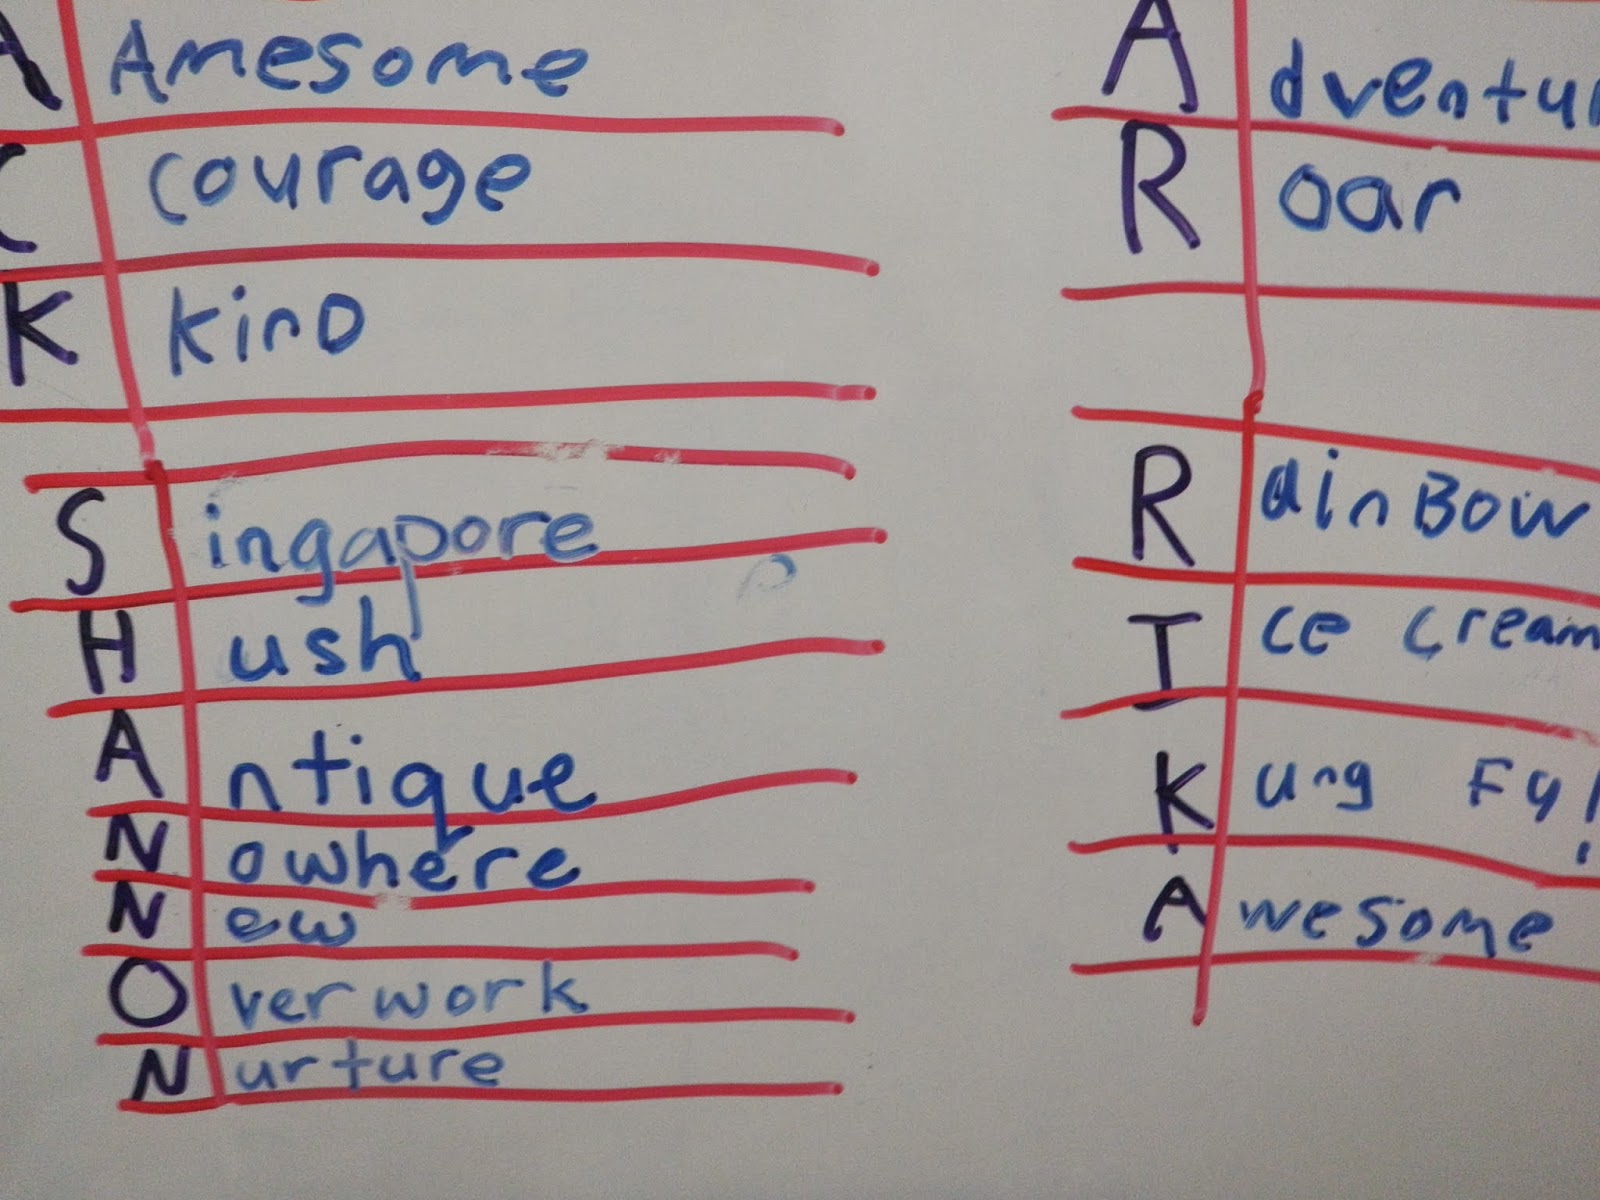 A Amesome
C courage
K kinD
S ingapore
H ush
A ntique
N owhere
N ew
O verwork
N urture
A dventur
R oar
R ainBow
I ce cream
K ung Fu!
A wesome